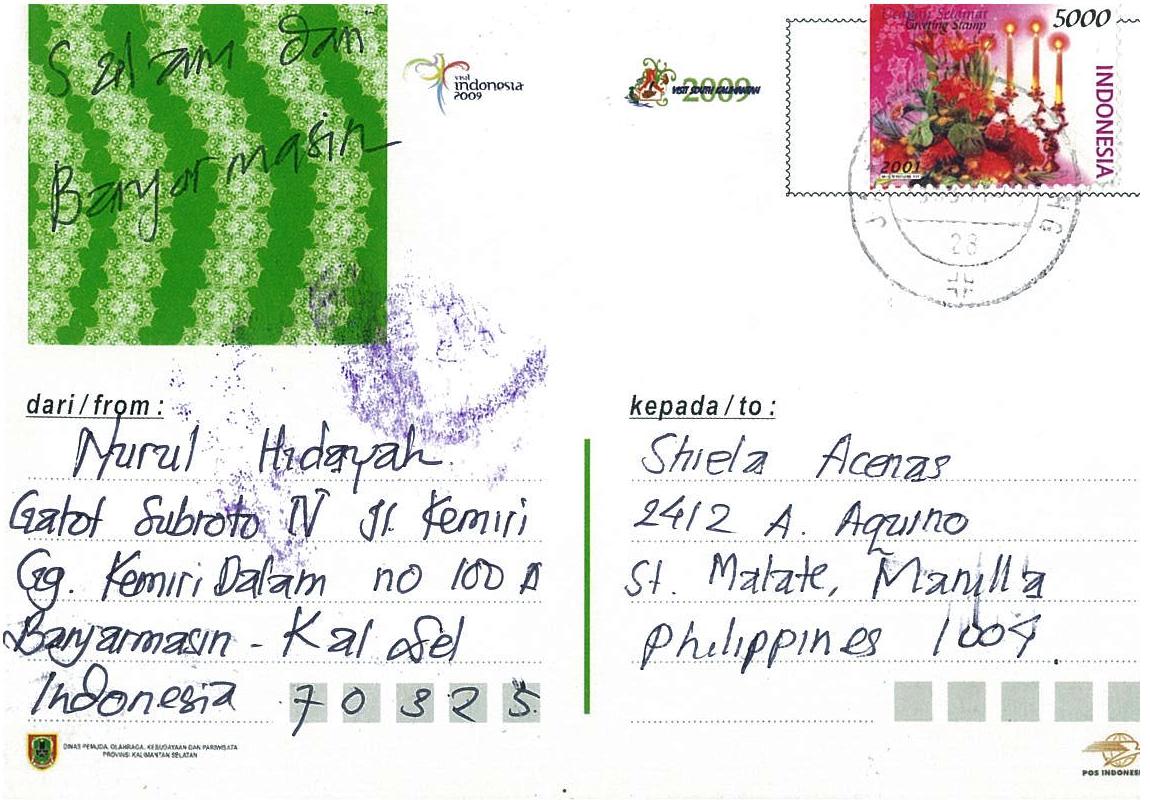 Salam dan
Banjarmasin
visit
indonesia
2009
VISIT SOUTH KALIMANTAN
2009
Ucapan Selamat
Greeting Stamp
5000
INDONESIA
2001
28
dari / from :
Nurul Hidayah
Gatot Subroto IV Jl. Kemiri
Gg. Kemiri Dalam no 100 A
Banjarmasin - Kal Sel
Indonesia 70325
DINAS PEMUDA, OLAHRAGA, KEBUDAYAAN DAN PARIWISATA
PROVINSI KALIMANTAN SELATAN
kepada / to :
Shiela Acenas
2412 A. Aquino
St. Malate, Manilla
Philippines 1004
POS INDONESI